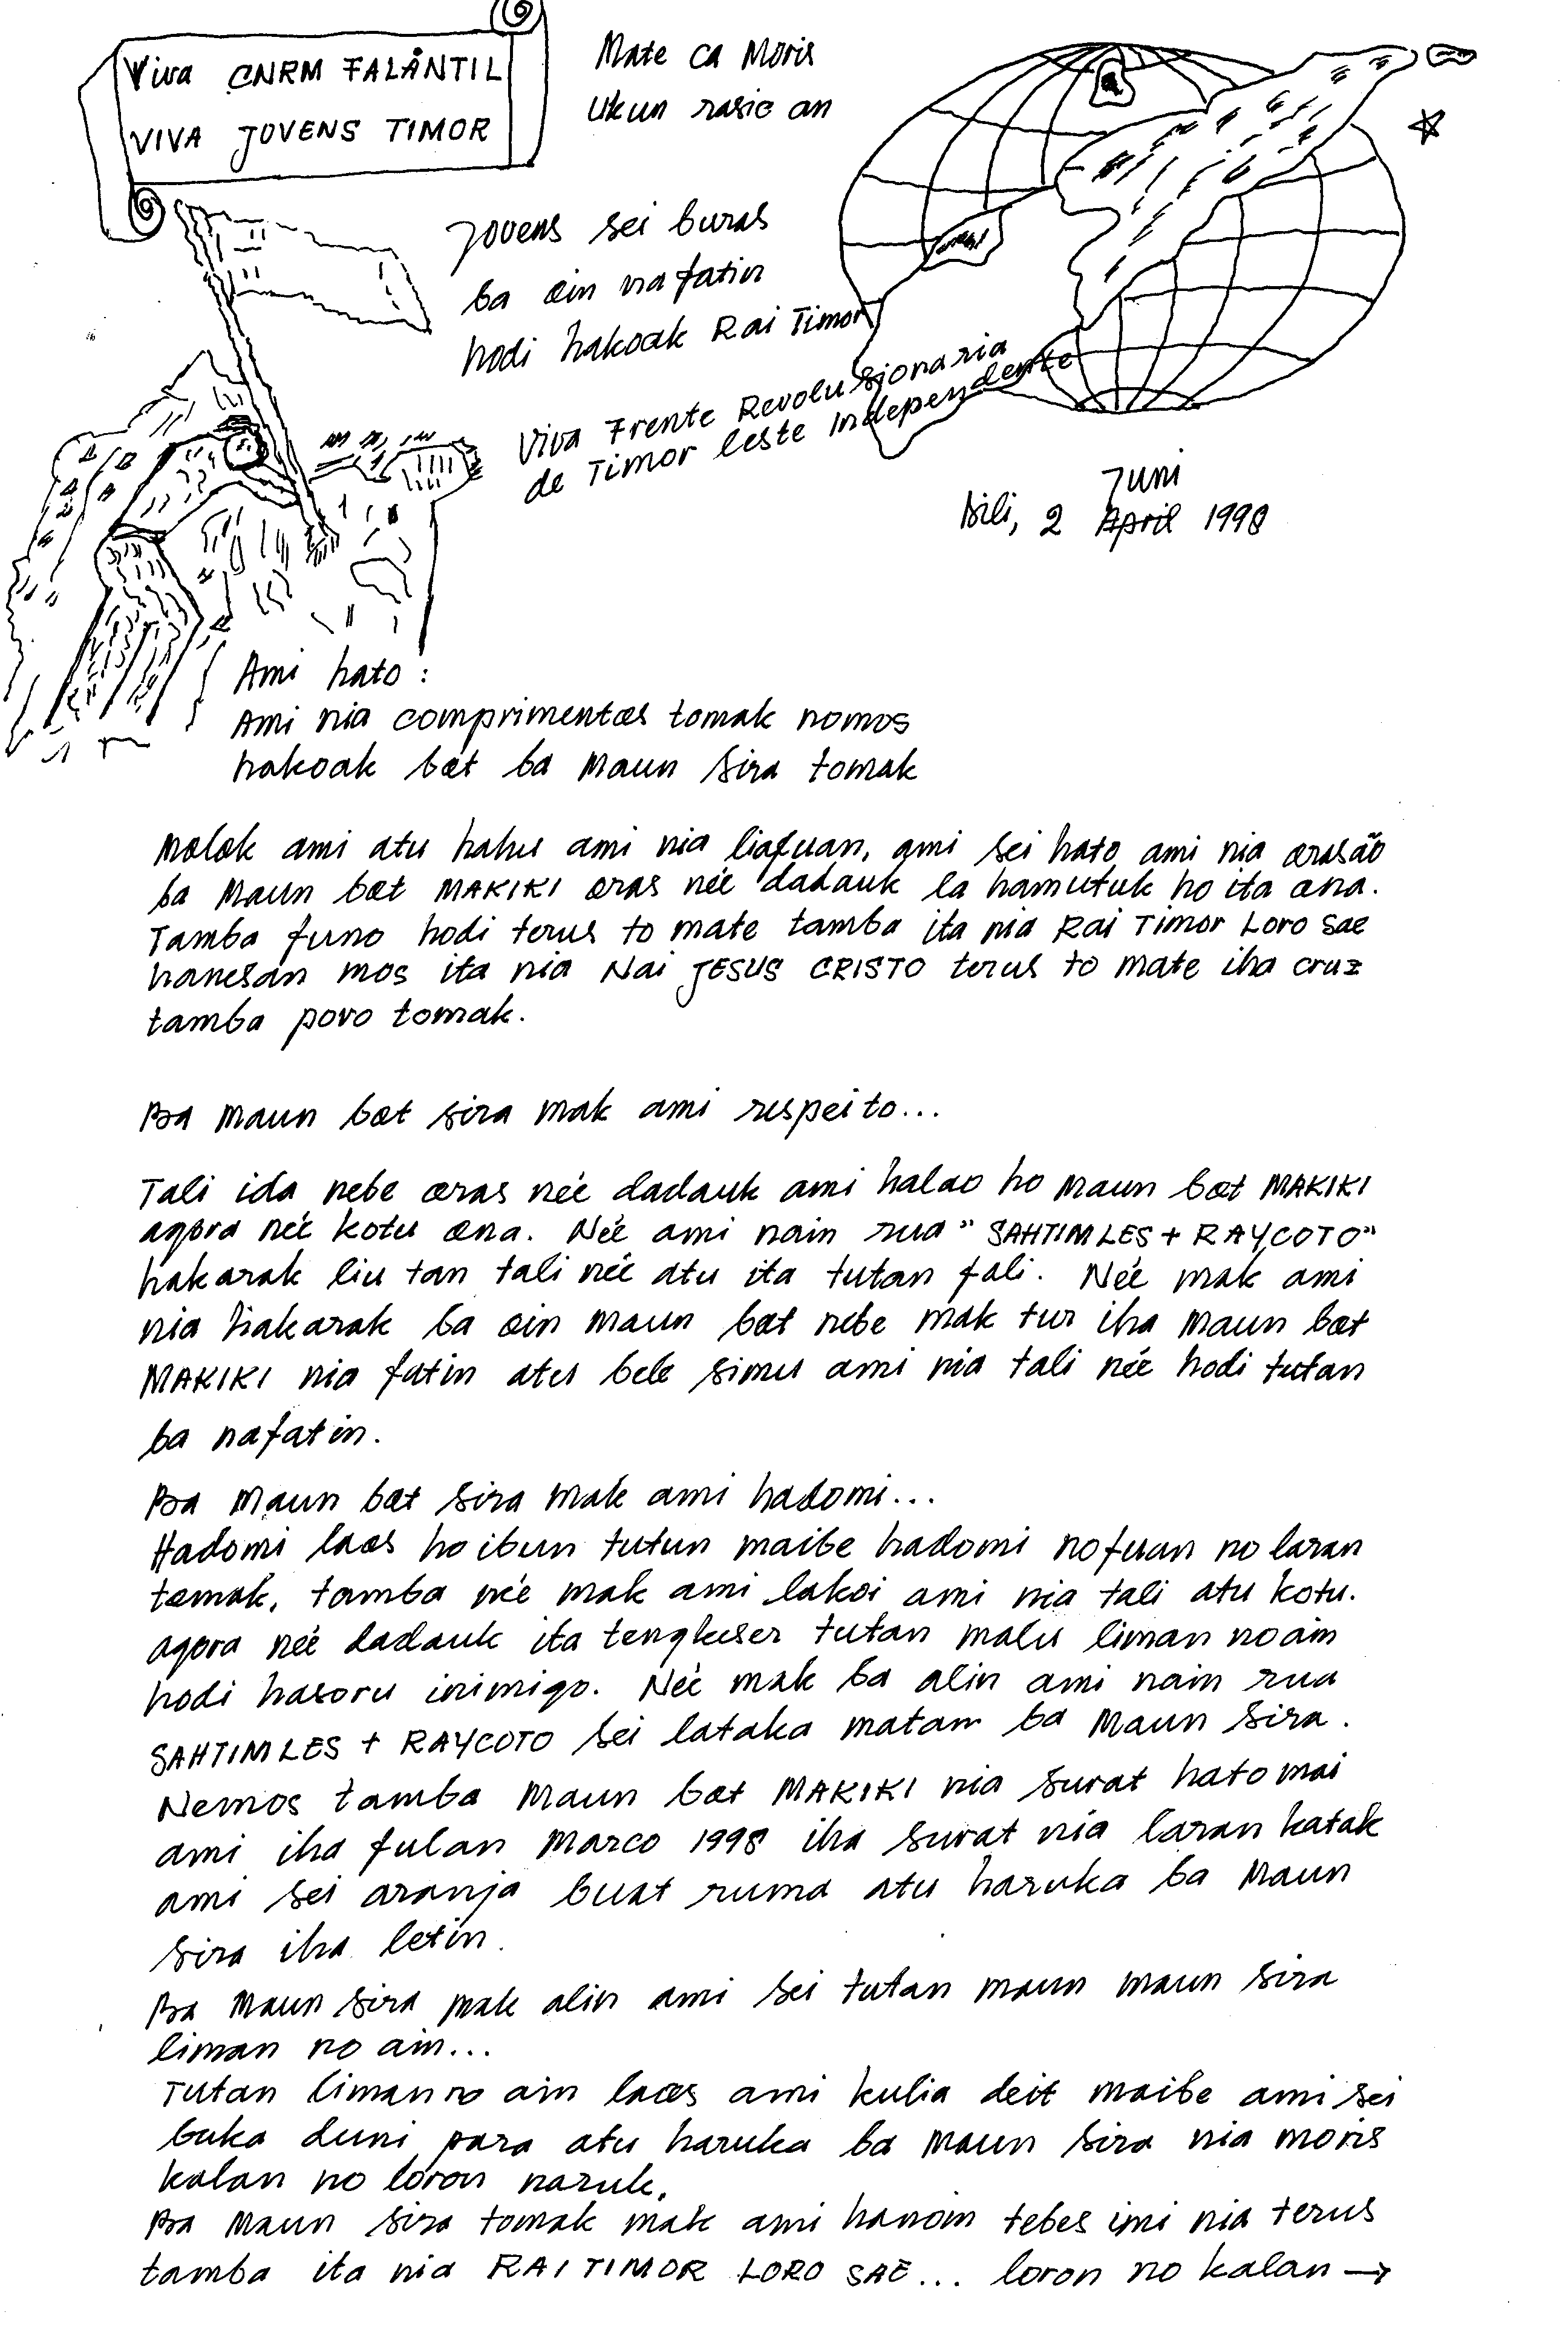 Viva CNRM FALÂNTIL
VIVA JOVENS TIMOR
Mate ca Moris
Ukun rasic an
Jovens sei buras
ba oin nafatin
hodi hakoak Rai Timor
Viva Frente Revolusjonaria
de Timor leste Independente
Juni
Dili, 2 April 1998
Ami hato :
Ami nia comprimentos tomak nomos
hakoak boot ba Maun sira tomak
Molok ami atu hahu ami nia liafuan, ami sei hato ami nia orasão
ba Maun boot MAKIKI oras neé dadauk la hamutuk ho ita ona.
Tamba funo hodi terus to mate tamba ita nia Rai Timor Loro Sae
hanesan mos ita nia Nai JESUS CRISTO terus to mate iha cruz
tamba povo tomak.
Ba Maun boot sira mak ami respeito...
Tali ida nebe oras neé dadauk ami halao ho Maun boot MAKIKI
agora neé kotu ona. Neé ami nain rua "SAHTIMLES + RAYCOTO"
hakarak liu tan tali neé atu ita tutan fali. Neé mak ami
nia hakarak ba oin Maun boot nebe mak tur iha Maun boot
MAKIKI nia fatin atu bele simu ami nia tali neé hodi tutan
ba nafatin.
Ba Maun boot sira mak ami hadomi...
Hadomi laos ho ibun tutun maibe hadomi no fuan no laran
tomak, tamba neé mak ami lakoi ami nia tali atu kotu.
agora neé dadauk ita tengkeser tutan malu liman no ain
hodi hasoru inimigo. Neé mak ba alin ami nain rua
SAHTIMLES + RAYCOTO sei lataka matan ba Maun sira.
Nemos tamba Maun boot MAKIKI nia surat hato mai
ami iha fulan Marco 1998 iha surat nia laran katak
ami sei aranja buat ruma atu haruka ba Maun
sira iha letin.
Ba Maun sira mak alin ami sei tutan maun maun sira
liman no ain...
Tutan liman no ain laos ami kulia deit maibe ami sei
buka duni para atu haruka ba Maun sira nia moris
kalan no loron naruk.
Ba Maun sira tomak mak ami hanoin tebes imi nia terus
tamba ita nia RAI TIMOR LORO SAE... loron no kalan →